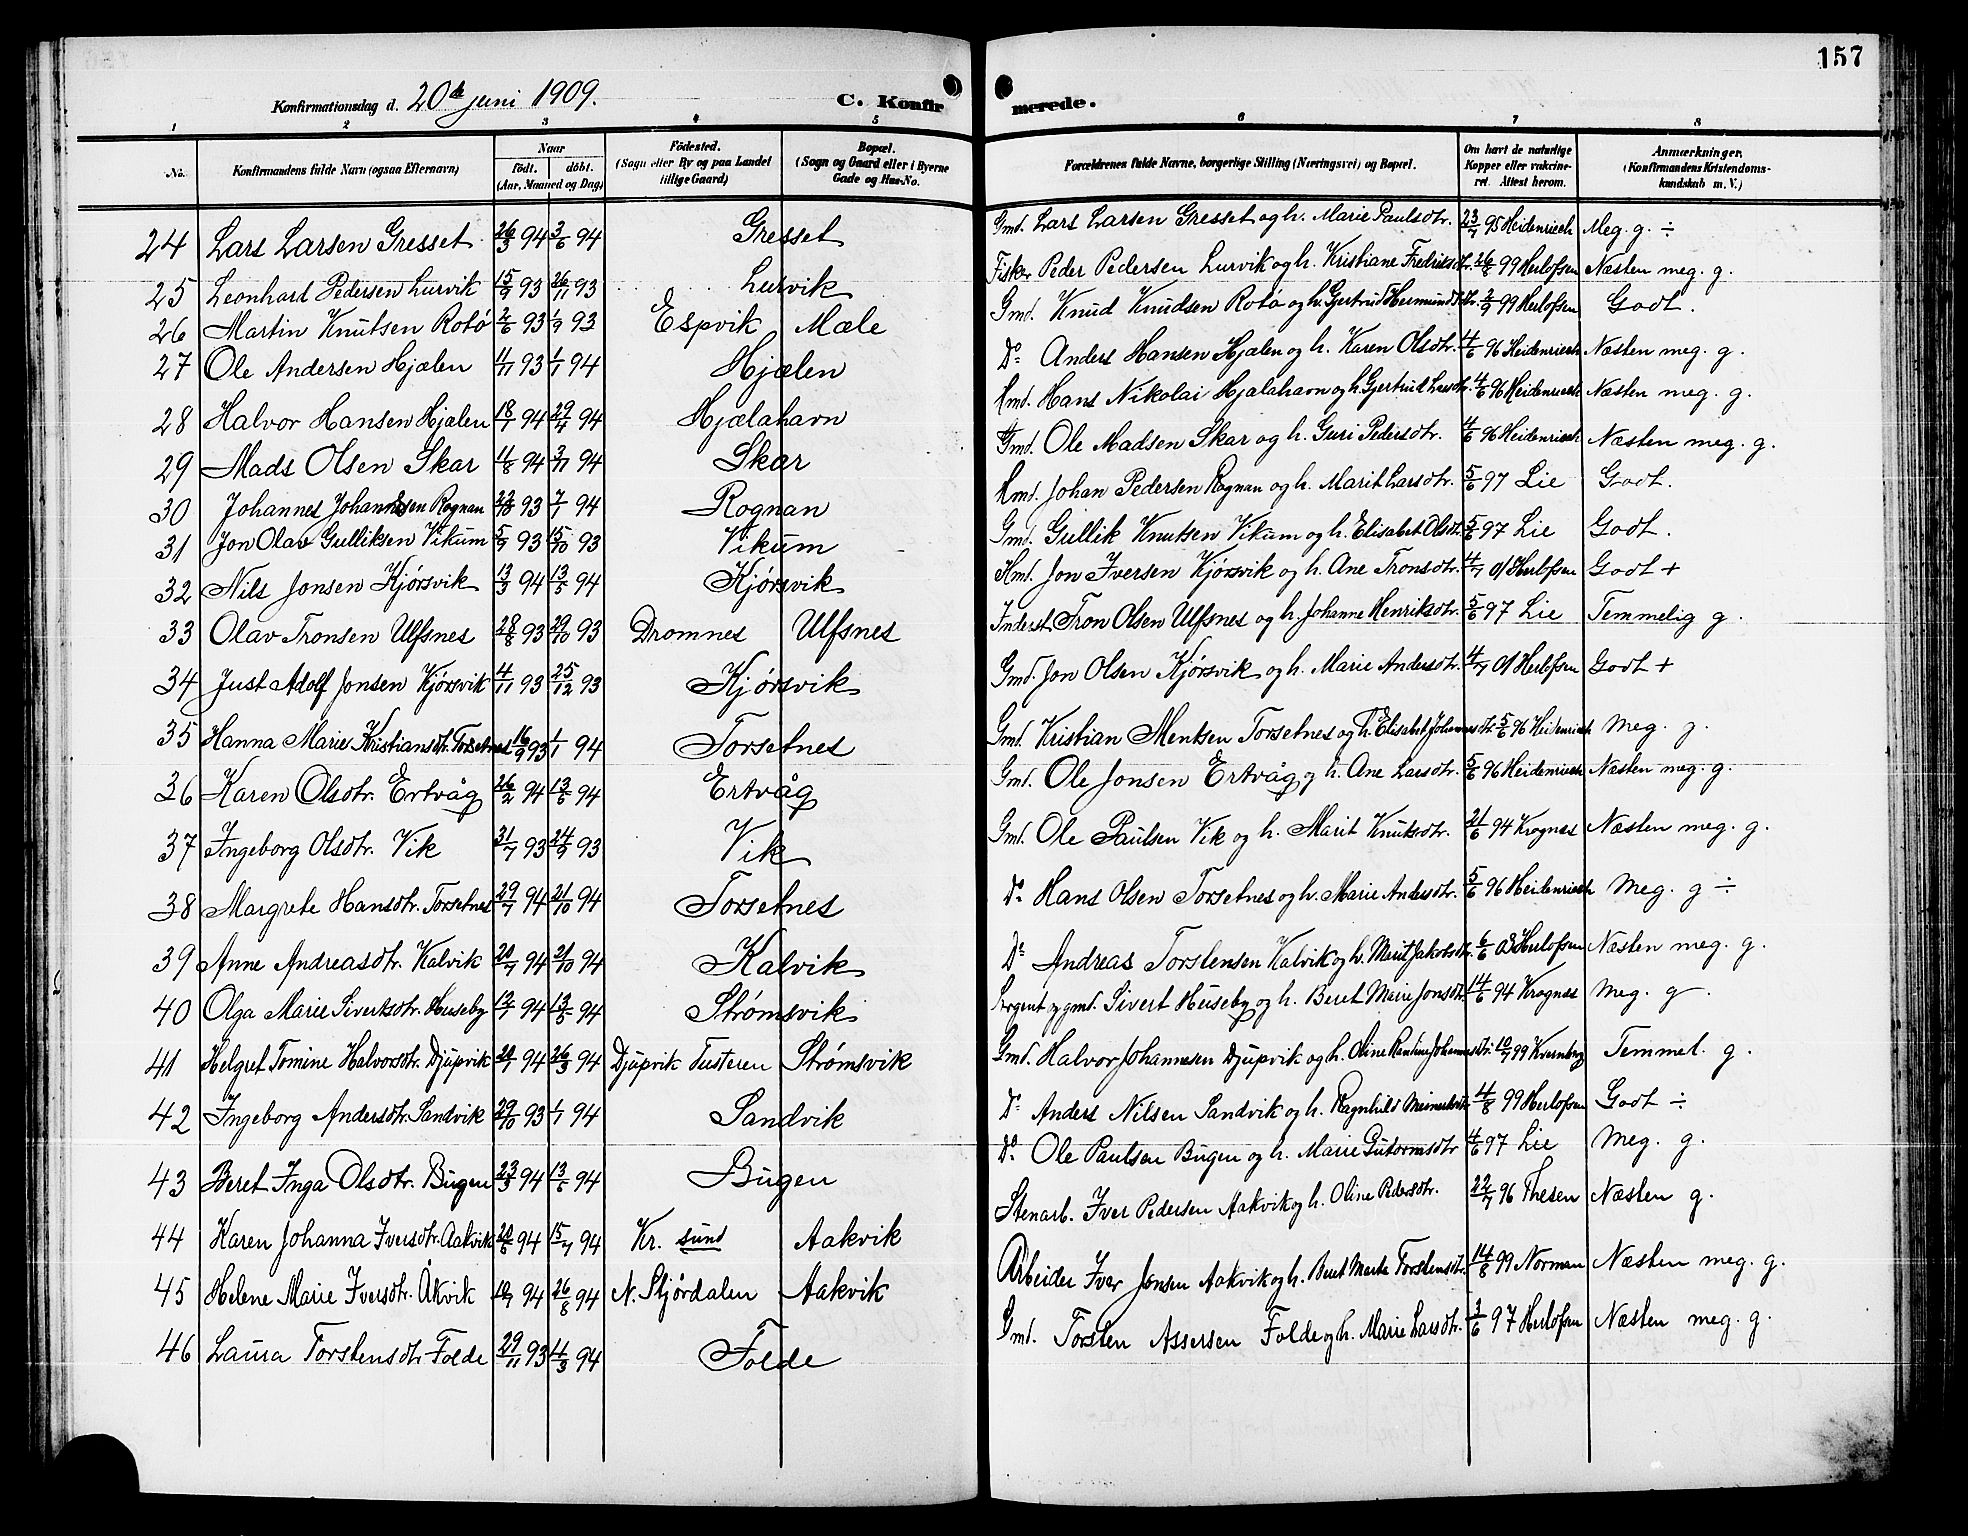 157
Konfirmationsdag d. 20de juni 1909. C. Konfirmerede.
1 2 3 4 5 6 7 8
No. Konfirmandens fulde Navn (ogsaa Efternavn) Naar födt. döbt. (Aar, Maaned og Dag) Födested. (Sogn eller By og paa Landet tillige Gaard) Bopæl. (Sogn og Gaard eller i Byerne Gade og Hus-No. Forældrenes fulde Navne, borgerlige Stilling (Næringsvei) og Bopæl. Om havt de naturlige Kopper eller vakcineret. Attest herom. Anmærkninger. (Konfirmandens Kristendomskundskab m. V.)
24 Lars Larsen Gresset 26/3 94 3/6 94 Gresset Gmd. Lars Larsen Gresset og h. Marie Paulsdtr. 23/7 95 Heidenrich Meg. g. ÷
25 Leonhart Pedersen Lurvik 15/9 93 26/11 93 Lurvik Fisker Peder Pedersen Lurvik og h. Kristiane Fredriksdtr. 26/8 99 Herlofsen Næsten meg. g.
26 Martin Knutsen Rotø 2/6 93 1/9 93 Espvik Mæle Gmd. Knud Knudsen Rotø og h. Gjertrud Hermundsdtr. 2/9 99 Herlofsen Godt.
27 Ole Andersen Hjælen 4/11 93 1/1 94 Hjælen Do Anders Hansen Hjælen og h. Karen Olsdtr. 4/6 96 Heidenrich Næsten meg. g.
28 Halvor Hansen Hjælen 18/1 94 29/4 94 Hjælahavn Hmd. Hans Nikolai Hjælahavn og h. Gjertrud Larsdtr. 4/6 96 Heidenrich Næsten meg. g.
29 Mads Olsen Skar 11/8 94 3/11 94 Skar Gmd. Ole Madsen Skar og h. Guri Pedersdtr. 4/6 96 Heidenrich Næsten meg. g.
30 Johannes Johannesen Rognan 22/10 93 7/1 94 Rognan Hmd. Johan Pedersen Rognan og h. Marit Larsdtr. 5/6 97 Lie Godt.
31 Jon Olav Gulliksen Vikum 5/9 93 15/10 93 Vikum Gmd. Gullik Knutsen Vikum og h. Elisabet Olsdtr. 5/6 97 Lie Godt.
32 Nils Jonsen Kjørsvik 13/3 94 13/5 94 Kjørsvik Hmd. Jon Iversen Kjørsvik og h. Ane Tronsdtr. 4/7 01 Herlofsen Godt +
33 Olav Tronsen Ulfsnes 28/8 93 29/10 93 Dromnes Ulfsnes Inderst Tron Olsen Ulfsnes og h. Johanne Henriksdtr. 5/6 97 Lie Temmelig g.
34 Just Adolf Jonsen Kjørsvik 4/11 93 25/12 93 Kjørsvik Gmd. Jon Olsen Kjørsvik og h. Marie Andersdtr. 4/7 01 Herlofsen Godt +
35 Hanna Marie Kristiansdtr. Torsetnes 16/9 93 1/1 94 Torsetnes Gmd. Kristian Mentsen Torsetnes og h. Elisabet Johannesdtr. 5/6 96 Heidenrich Meg. g.
36 Karen Olsdtr. Ertvåg 26/2 94 13/5 94 Ertvåg Gmd. Ole Jonsen Ertvåg og h. Ane Larsdtr. 5/6 96 Heidenrich Næsten meg. g.
37 Ingeborg Olsdtr. Vik 31/7 93 24/9 93 Vik Gmd. Ole Paulsen Vik og h. Marit Knutsdtr. 21/6 94 Krognæs Næsten meg. g.
38 Margrete Hansdtr. Torsetnes 29/7 94 21/10 94 Torsetnes Do Hans Olsen Torsetnes og h. Marie Andersdtr. 5/6 96 Heidenrich Meg. g ÷
39 Anne Andreasdtr. Kalvik 20/7 94 21/10 94 Kalvik Do Andreas Torstensen Kalvik og h. Marit Jakobsdtr. 6/6 03 Herlofsen Næsten meg. g.
40 Olga Marie Sivertsdtr. Huseby 12/1 94 13/5 94 Strømsvik Sergent og gmd. Sivert Huseby og h. Beret Marie Jonsdtr. 14/6 94 Krognæs Meg. g.
41 Helgret Tomine Halvorsdtr. Djupvik 20/1 94 26/3 94 Djupvik Tusteren Strømsvik Gmd. Halvor Johannesen Djupvik og h. Oline Pauline Johannesdtr. 10/7 99 Kvernberg Temmel. g.
42 Ingeborg Andersdtr. Sandvik 29/10 93 1/1 94 Sandvik Do Anders Nilsen Sandvik og h. Ragnhild Meinertsdtr. 4/8 99 Herlofsen Godt ÷
43 Beret Inga Olsdtr. Bugen 23/3 94 13/5 94 Bugen Do Ole Paulsen Bugen og h. Marie Gutormsdtr 4/6 97 Lie Meg. g.
44 Karen Johanna Iversdtr. Aakvik 20/5 94 15/7 94 Kr. sund Aakvik Stenarb. Iver Pedersen Aakvik og h. Oline Pedersdtr. 22/7 96 Thesen Næsten g.
45 Helene Marie Iversdtr. Åkvik 10/7 94 26/8 94 N. Stjørdalen Aakvik Arbeider Iver Jonsen Aakvik og h. Beret Marta Torstensdtr. 14/8 99 Norman Næsten meg. g.
46 Laura Torstensdtr Folde 29/11 93 4/3 94 Folde Gmd. Torsten Assersen Folde og h. Marie Larsdtr. 3/6 97 Herlofsen Næsten meg. g.